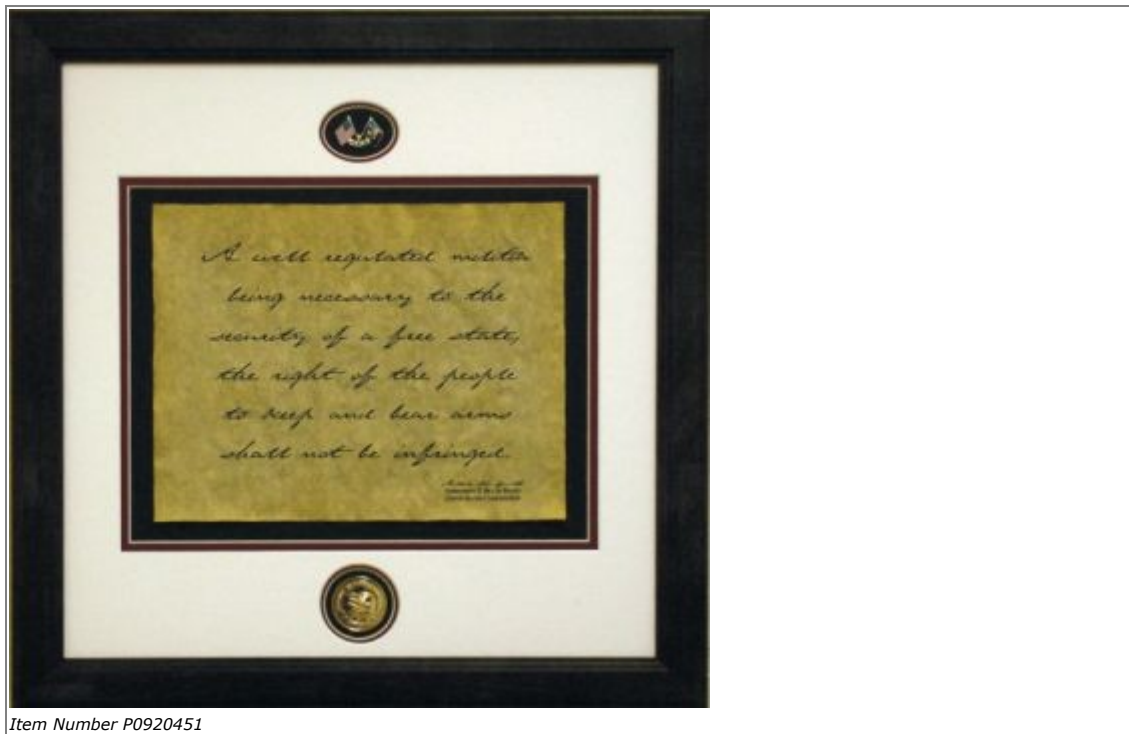 A well regulated militia
being necessary to the
security of a free state,
the right of the people
to keep and bear arms
shall not be infringed.
Item Number P0920451